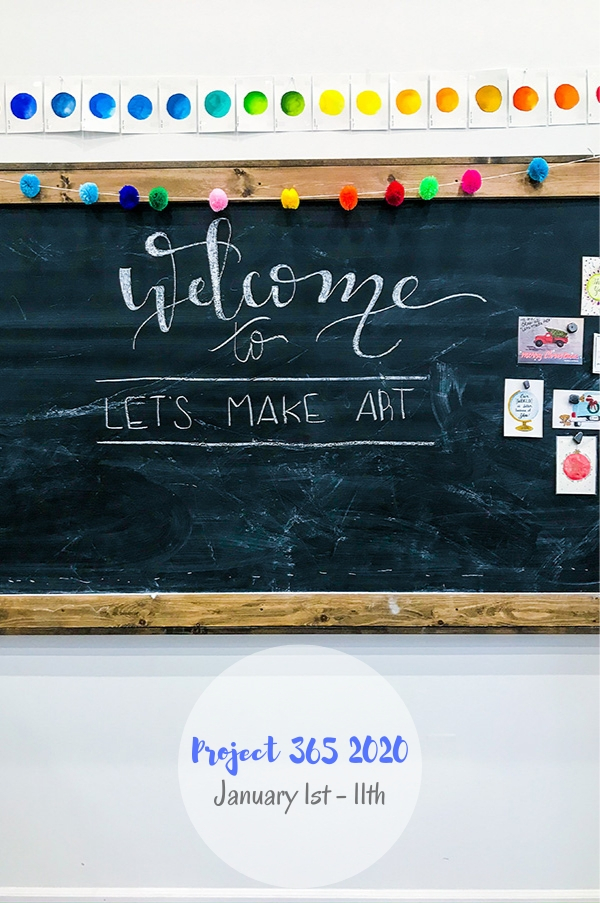 welcome
to
LET'S MAKE ART
Merry Christmas
Project 365 2020
January 1st - 11th